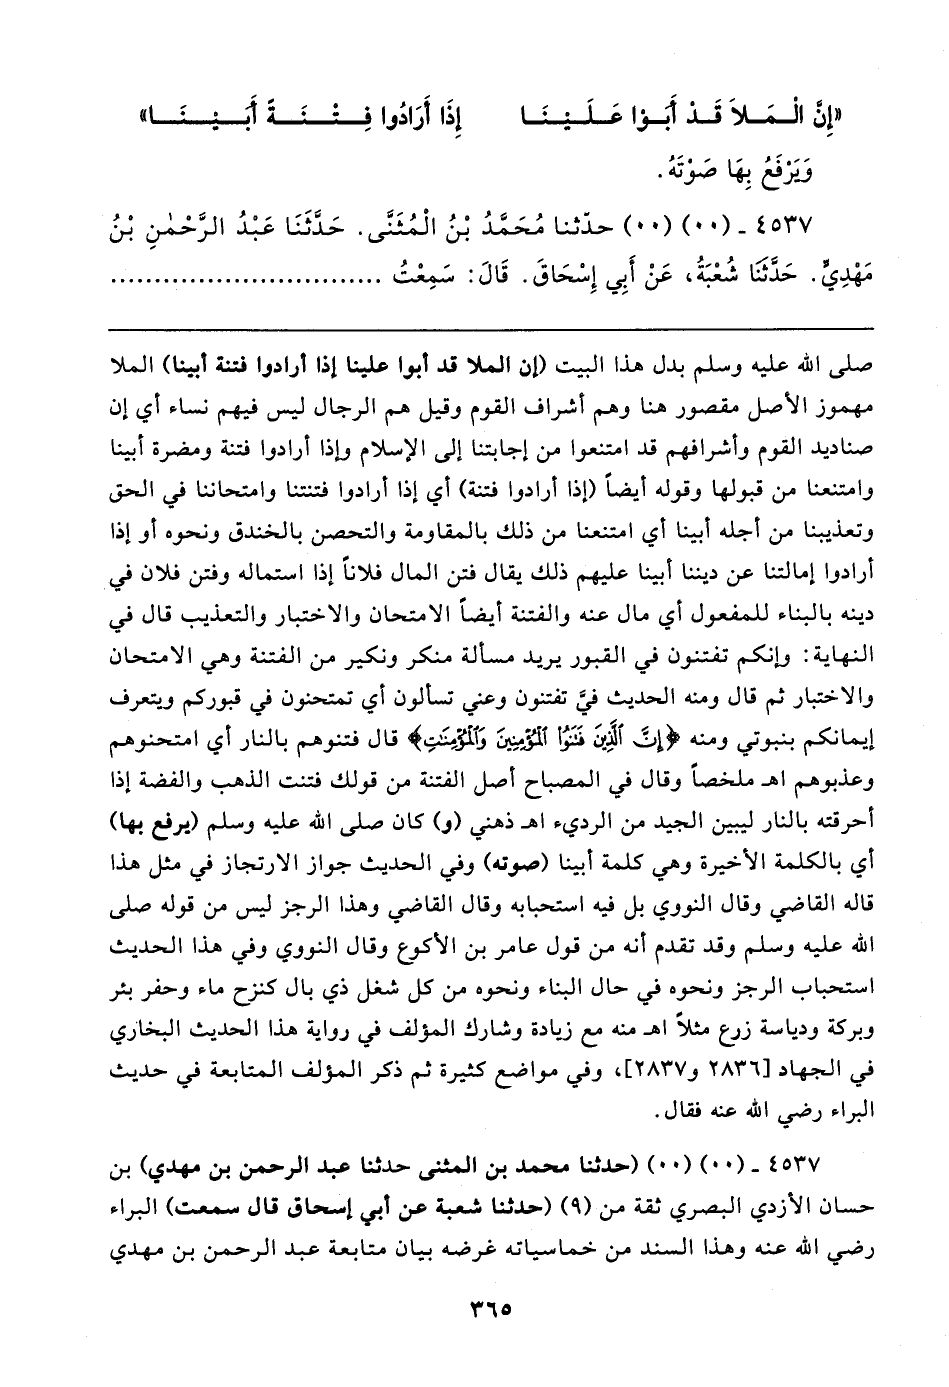 «إِنَّ الْمَلاَ قَدْ أَبَوْا عَلَيْنَا إِذَا أَرَادُوا فِتْنَةً أَبَيْنَا»
وَيَرْفَعُ بِهَا صَوْتَهُ.
٤٥٣٧ - (٠٠) (٠٠) حدّثنا مُحَمَّدُ بْنُ الْمُثَنَّى. حَدَّثَنَا عَبْدُ الرَّحْمٰنِ بْنُ
مَهْدِيٍّ. حَدَّثَنَا شُعْبَةُ، عَنْ أَبِي إِسْحَاقَ. قَالَ: سَمِعْتُ ..............................
صلى الله عليه وسلم بدل هذا البيت (إن الملا قد أبوا علينا إذا أرادوا فتنة أبينا) الملا
مهموز الأصل مقصور هنا وهم أشراف القوم وقيل هم الرجال ليس فيهم نساء أي إن
صناديد القوم وأشرافهم قد امتنعوا من إجابتنا إلى الإسلام وإذا أرادوا فتنة ومضرة أبينا
وامتنعنا من قبولها وقوله أيضاً (إذا أرادوا فتنة) أي إذا أرادوا فتنتنا وامتحاننا في الحق
وتعذيبنا من أجله أبينا أي امتنعنا من ذلك بالمقاومة والتحصن بالخندق ونحوه أو إذا
أرادوا إمالتنا عن ديننا أبينا عليهم ذلك يقال فتن المال فلاناً إذا استماله وفتن فلان في
دينه بالبناء للمفعول أي مال عنه والفتنة أيضاً الامتحان والاختبار والتعذيب قال في
النهاية: وإنكم تفتنون في القبور يريد مسألة منكر ونكير من الفتنة وهي الامتحان
والاختبار ثم قال ومنه الحديث فيَّ تفتنون وعني تسألون أي تمتحنون في قبوركم ويتعرف
إيمانكم بنبوتي ومنه ﴿إِنَّ ٱلَّذِينَ فَتَنُوا۟ ٱلْمُؤْمِنِينَ وَٱلْمُؤْمِنَٰتِ﴾ قال فتنوهم بالنار أي امتحنوهم
وعذبوهم اهـ ملخصاً وقال في المصباح أصل الفتنة من قولك فتنت الذهب والفضة إذا
أحرقته بالنار ليبين الجيد من الرديء اهـ ذهني (و) كان صلى الله عليه وسلم (يرفع بها)
أي بالكلمة الأخيرة وهي كلمة أبينا (صوته) وفي الحديث جواز الارتجاز في مثل هذا
قاله القاضي وقال النووي بل فيه استحبابه وقال القاضي وهذا الرجز ليس من قوله صلى
الله عليه وسلم وقد تقدم أنه من قول عامر بن الأكوع وقال النووي وفي هذا الحديث
استحباب الرجز ونحوه في حال البناء ونحوه من كل شغل ذي بال كنزح ماء وحفر بئر
وبركة ودياسة زرع مثلاً اهـ منه مع زيادة وشارك المؤلف في رواية هذا الحديث البخاري
في الجهاد [٢٨٣٦ و٢٨٣٧]، وفي مواضع كثيرة ثم ذكر المؤلف المتابعة في حديث
البراء رضي الله عنه فقال.
٤٥٣٧ - (٠٠) (٠٠) (حدثنا محمد بن المثنى حدثنا عبد الرحمن بن مهدي) بن
حسان الأزدي البصري ثقة من (٩) (حدثنا شعبة عن أبي إسحاق قال سمعت) البراء
رضي الله عنه وهذا السند من خماسياته غرضه بيان متابعة عبد الرحمن بن مهدي
٣٦٥